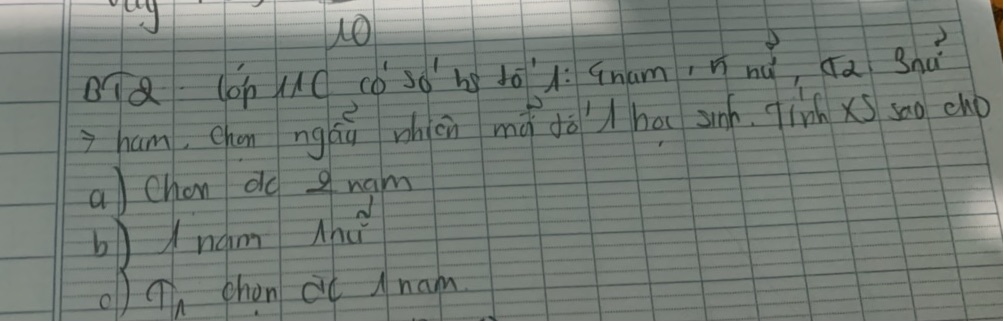 10
BT2. lớp 11C có số hs tổ 1: 4 nam, 5 nữ, T2 3 nữ
7 nam. Chọn ngẫu nhiên mỗi tổ 1 học sinh. Tính XS sao cho
a) Chọn đc 2 nam
b) 1 nam 1 nữ
c) Tn chọn đc 1 nam